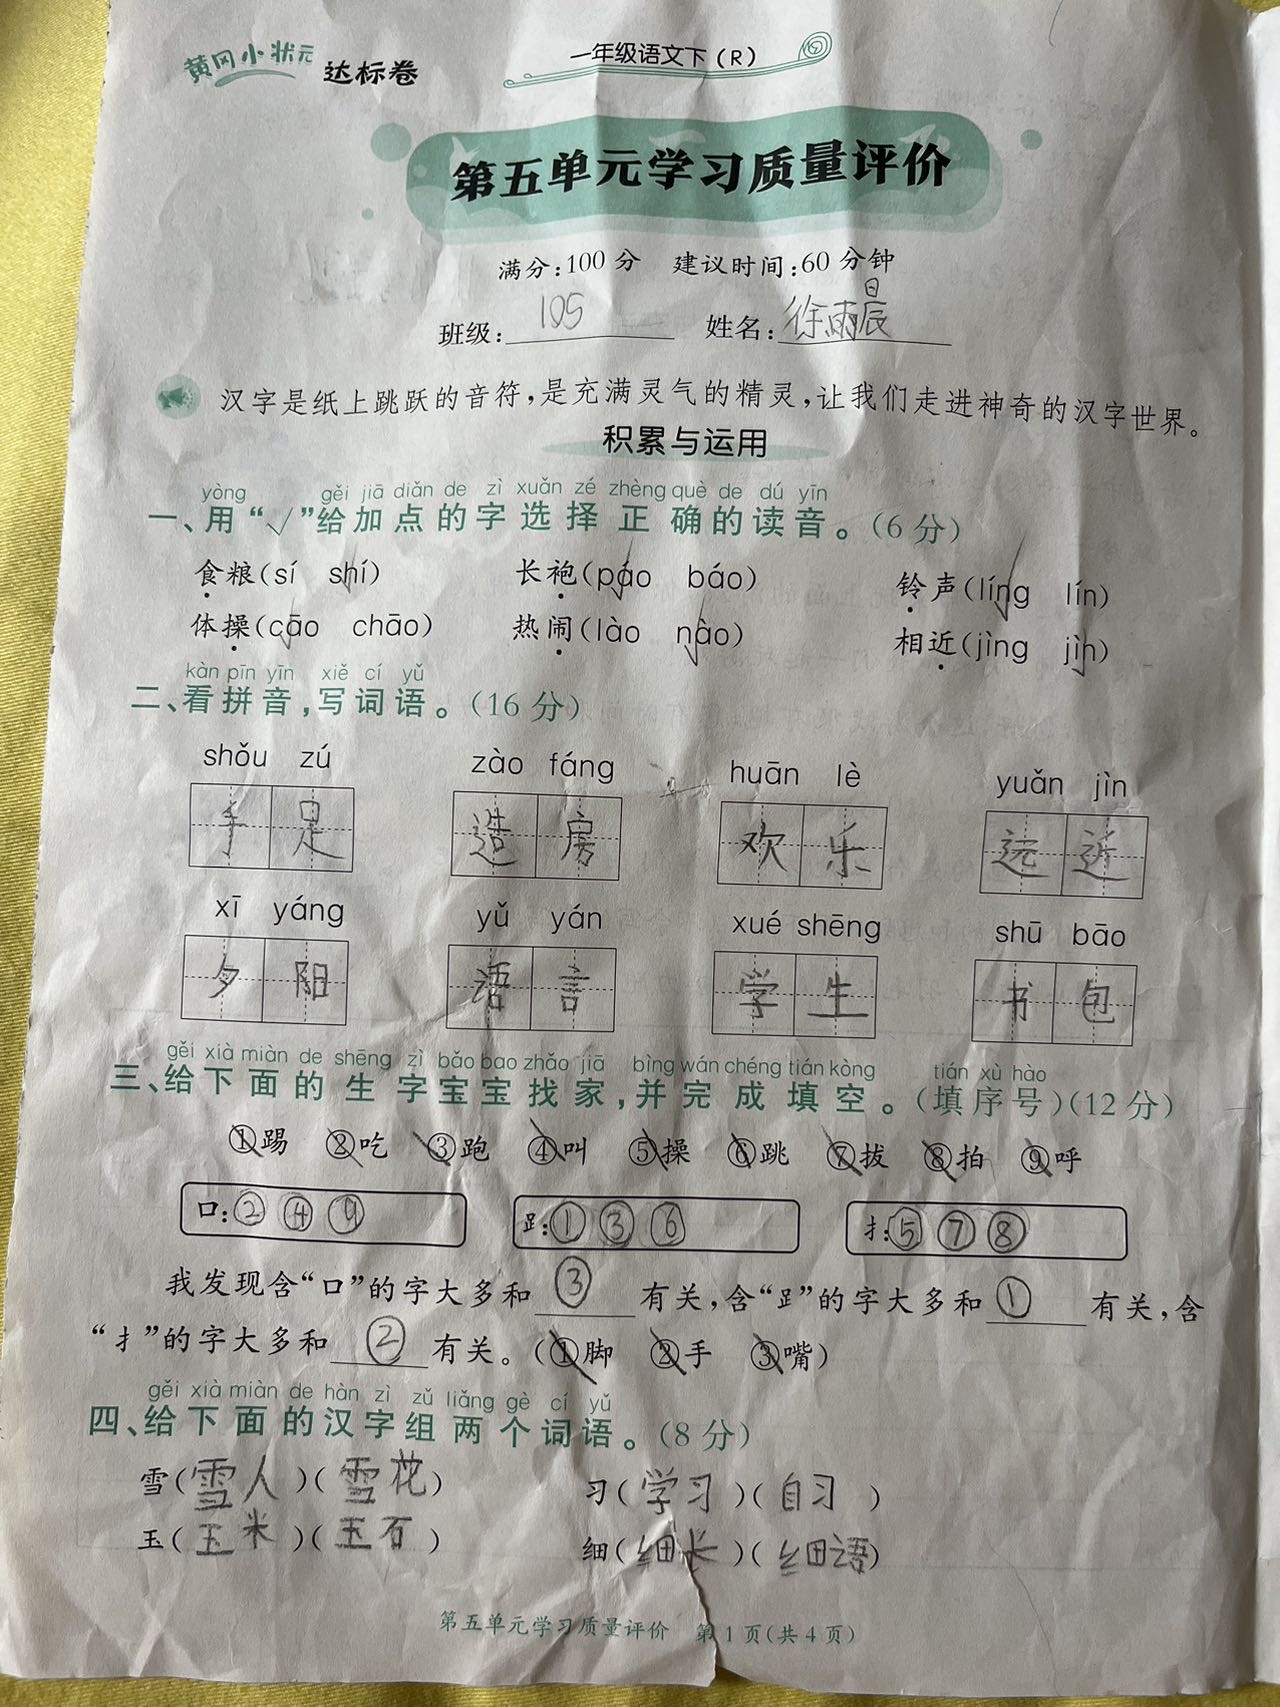 黄冈小状元 达标卷 一年级语文下（R）
第五单元学习质量评价
满分：100分 建议时间：60分钟
班级：105 姓名：徐雨晨
汉字是纸上跳跃的音符，是充满灵气的精灵，让我们走进神奇的汉字世界。
积累与运用
yòng gěi jiā diǎn de zì xuǎn zé zhèng què de dú yīn
一、用“√”给加点的字选择正确的读音。（6分）
食粮（sí shí） 长袍（páo báo） 铃声（líng lín）
体操（cāo chāo） 热闹（lào nào） 相近（jìng jìn）
kàn pīn yīn xiě cí yǔ
二、看拼音，写词语。（16分）
shǒu zú zào fáng huān lè yuǎn jìn
手足 造房 欢乐 远近
xī yáng yǔ yán xué shēng shū bāo
夕阳 语言 学生 书包
gěi xià miàn de shēng zì bǎo bao zhǎo jiā bìng wán chéng tián kòng tián xù hào
三、给下面的生字宝宝找家，并完成填空。（填序号）（12分）
①踢 ②吃 ③跑 ④叫 ⑤操 ⑥跳 ⑦拔 ⑧拍 ⑨呼
口：②④⑨ 𧾷：①③⑥ 扌：⑤⑦⑧
我发现含“口”的字大多和③有关，含“𧾷”的字大多和①有关，含
“扌”的字大多和②有关。（①脚 ②手 ③嘴）
gěi xià miàn de hàn zì zǔ liǎng gè cí yǔ
四、给下面的汉字组两个词语。（8分）
雪（雪人）（雪花） 习（学习）（自习）
玉（玉米）（玉石） 细（细长）（细语）
第五单元学习质量评价 第1页（共4页）